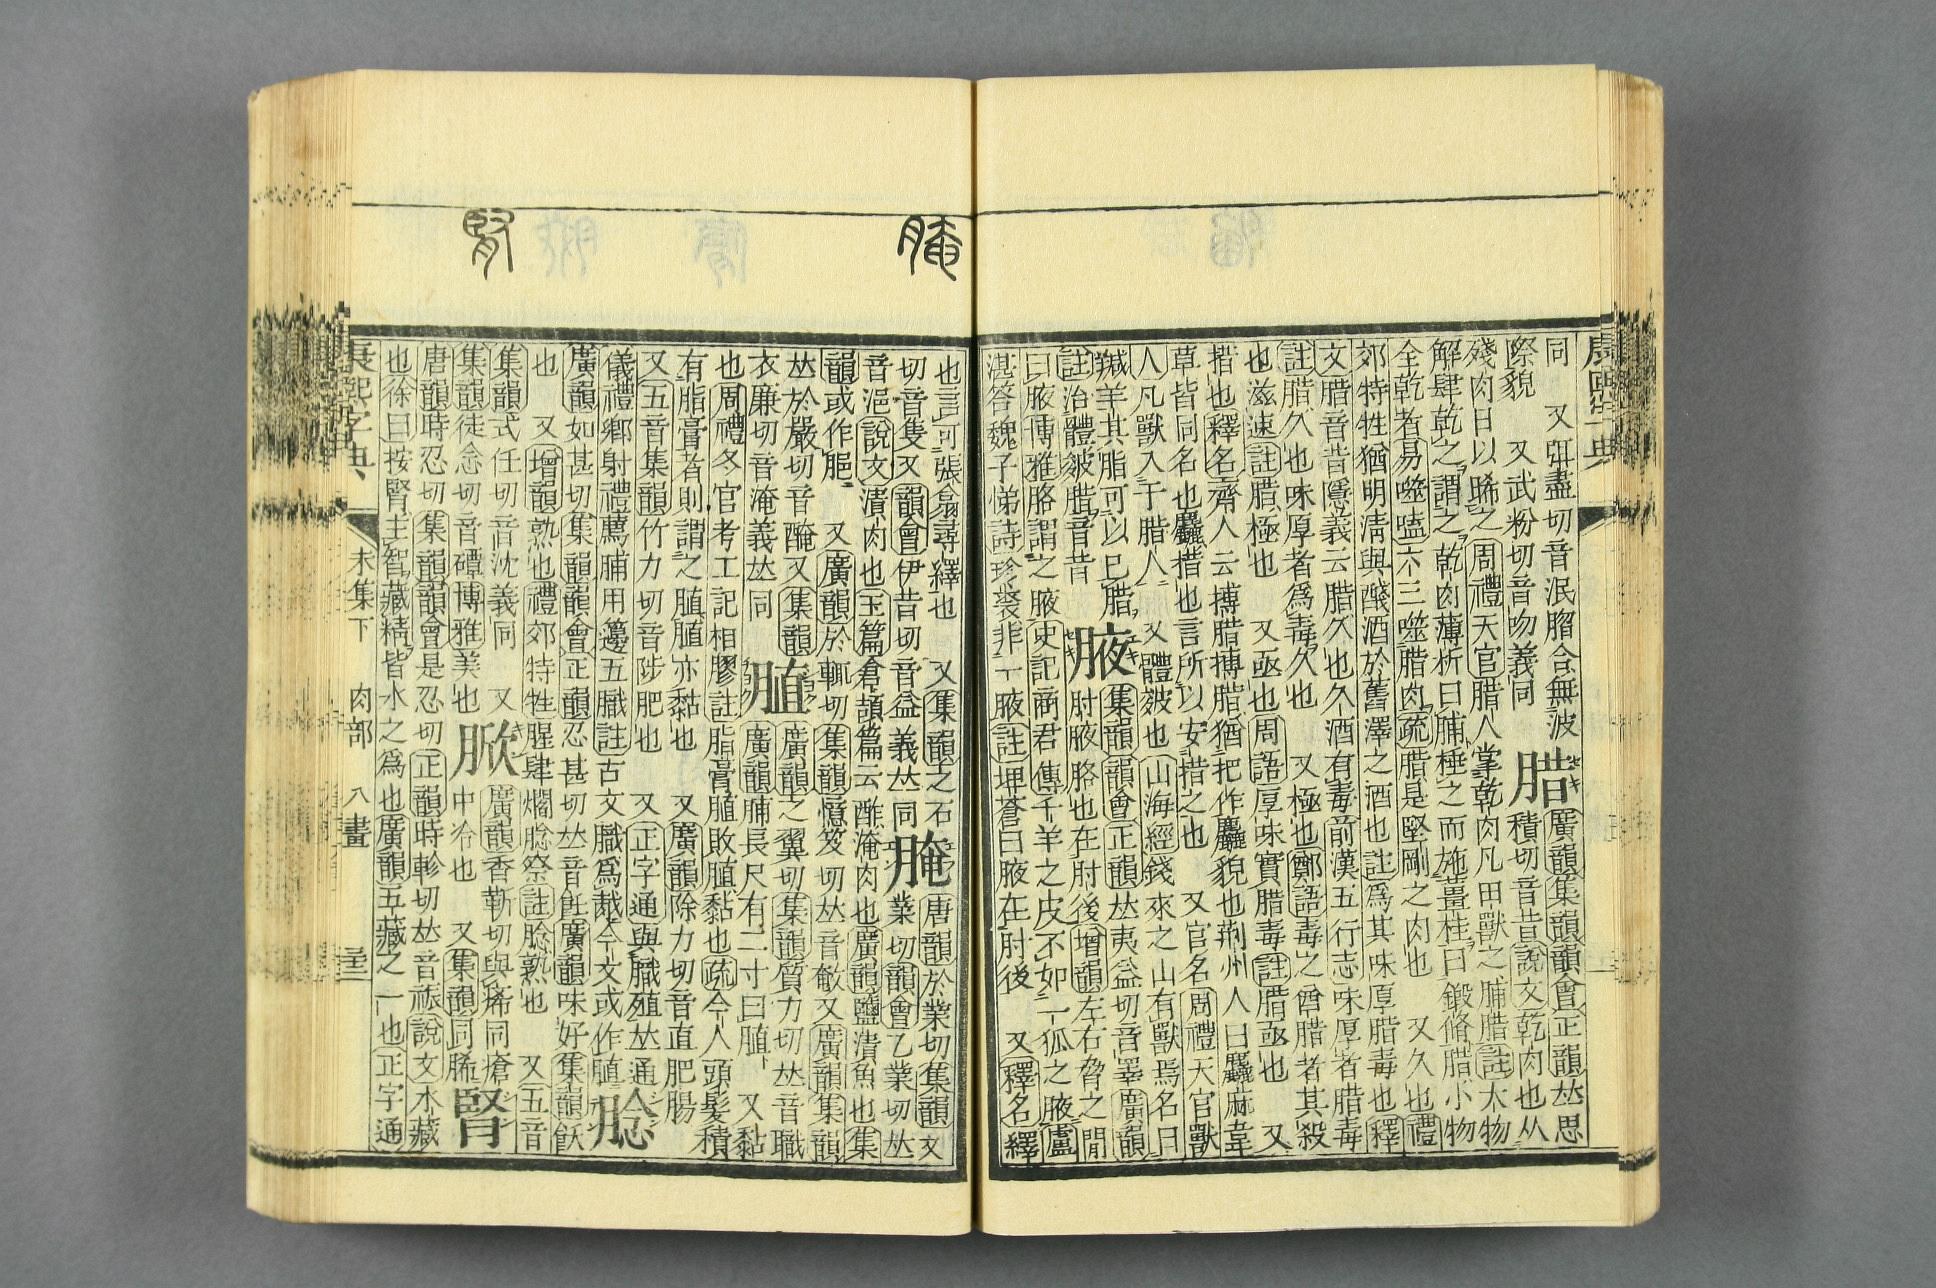 同　又弭盡切音泯脗合無波
際貌　又武粉切音吻義同
腊
廣韻集韻韻會正韻𠀤思
積切音昔說文乾肉也从
殘肉日以晞之周禮天官腊人掌乾肉凡田獸之脯腊註大物
解肆乾之謂之乾肉薄析曰脯棰之而施薑桂曰鍛脩腊小物
全乾者易噬嗑六三噬腊肉疏腊是堅剛之肉也　又久也禮
郊特牲猶明淸與醆酒於舊澤之酒也註爲其味厚腊毒也釋
文腊音昔隱義云腊久也久酒有毒前漢五行志味厚者腊毒
註腊久也味厚者爲毒久也　又極也鄭語毒之酋腊者其殺
也滋速註腊極也　又亟也周語厚味實腊毒註腊亟也　又
㨋也釋名齊人云搏腊搏腊猶把作麤貌也荊州人曰麤麻韋
草皆同名也麤措也言所以安措之也　又官名周禮天官獸
人凡獸入于腊人　又體皴也山海經錢來之山有獸焉名曰
羬羊其脂可以已腊
註治體皴腊音昔
腋
集韻韻會正韻𠀤夷益切音睪廣韻
肘腋胳也在肘後增韻左右脅之閒
曰腋博雅胳謂之腋史記商君傳千羊之皮不如一狐之腋盧
湛答魏子悌詩珍裘非一腋註埤蒼曰腋在肘後　又釋名繹
也言可張翕尋繹也　又集韻之石
切音隻又韻會伊昔切音益義𠀤同
腌
唐韻於業切集韻
業切韻會乙業切𠀤
音浥說文漬肉也玉篇倉頡篇云酢淹肉也廣韻鹽漬魚也集
韻或作脃　又廣韻於輒切集韻憶笈切𠀤音敵又廣韻集韻
𠀤於嚴切音醃又集韻
衣廉切音淹義𠀤同
膱
廣韻之翼切集韻質力切𠀤音職
廣韻脯長尺有二寸曰膱　又黏
也周禮冬官考工記相膠註脂膏膱敗膱黏也疏今人頭髮積
有脂膏者則謂之膱膱亦黏也　又廣韻除力切音直肥腸
又五音集韻竹力切音陟肥也　又正字通與膱殖𠀤通
儀禮鄕射禮薦脯用籩五膱註古文膱爲胾今文或作植
腍
廣韻如甚切集韻韻會正韻忍甚切𠀤音飪廣韻味好集韻飫
也　又增韻熟也禮郊特牲腥肆爓腍祭註腍熟也　又五音
集韻式任切音沈義同　又
集韻徒念切音磹博雅美也
脪
廣韻香靳切與痏同瘡
中冷也　又集韻同脪
腎
唐韻時忍切集韻韻會是忍切正韻時軫切𠀤音祳說文水藏
也徐曰按腎主智藏精皆水之爲也廣韻五藏之一也正字通
康熙字典
未集下　肉部　八畫